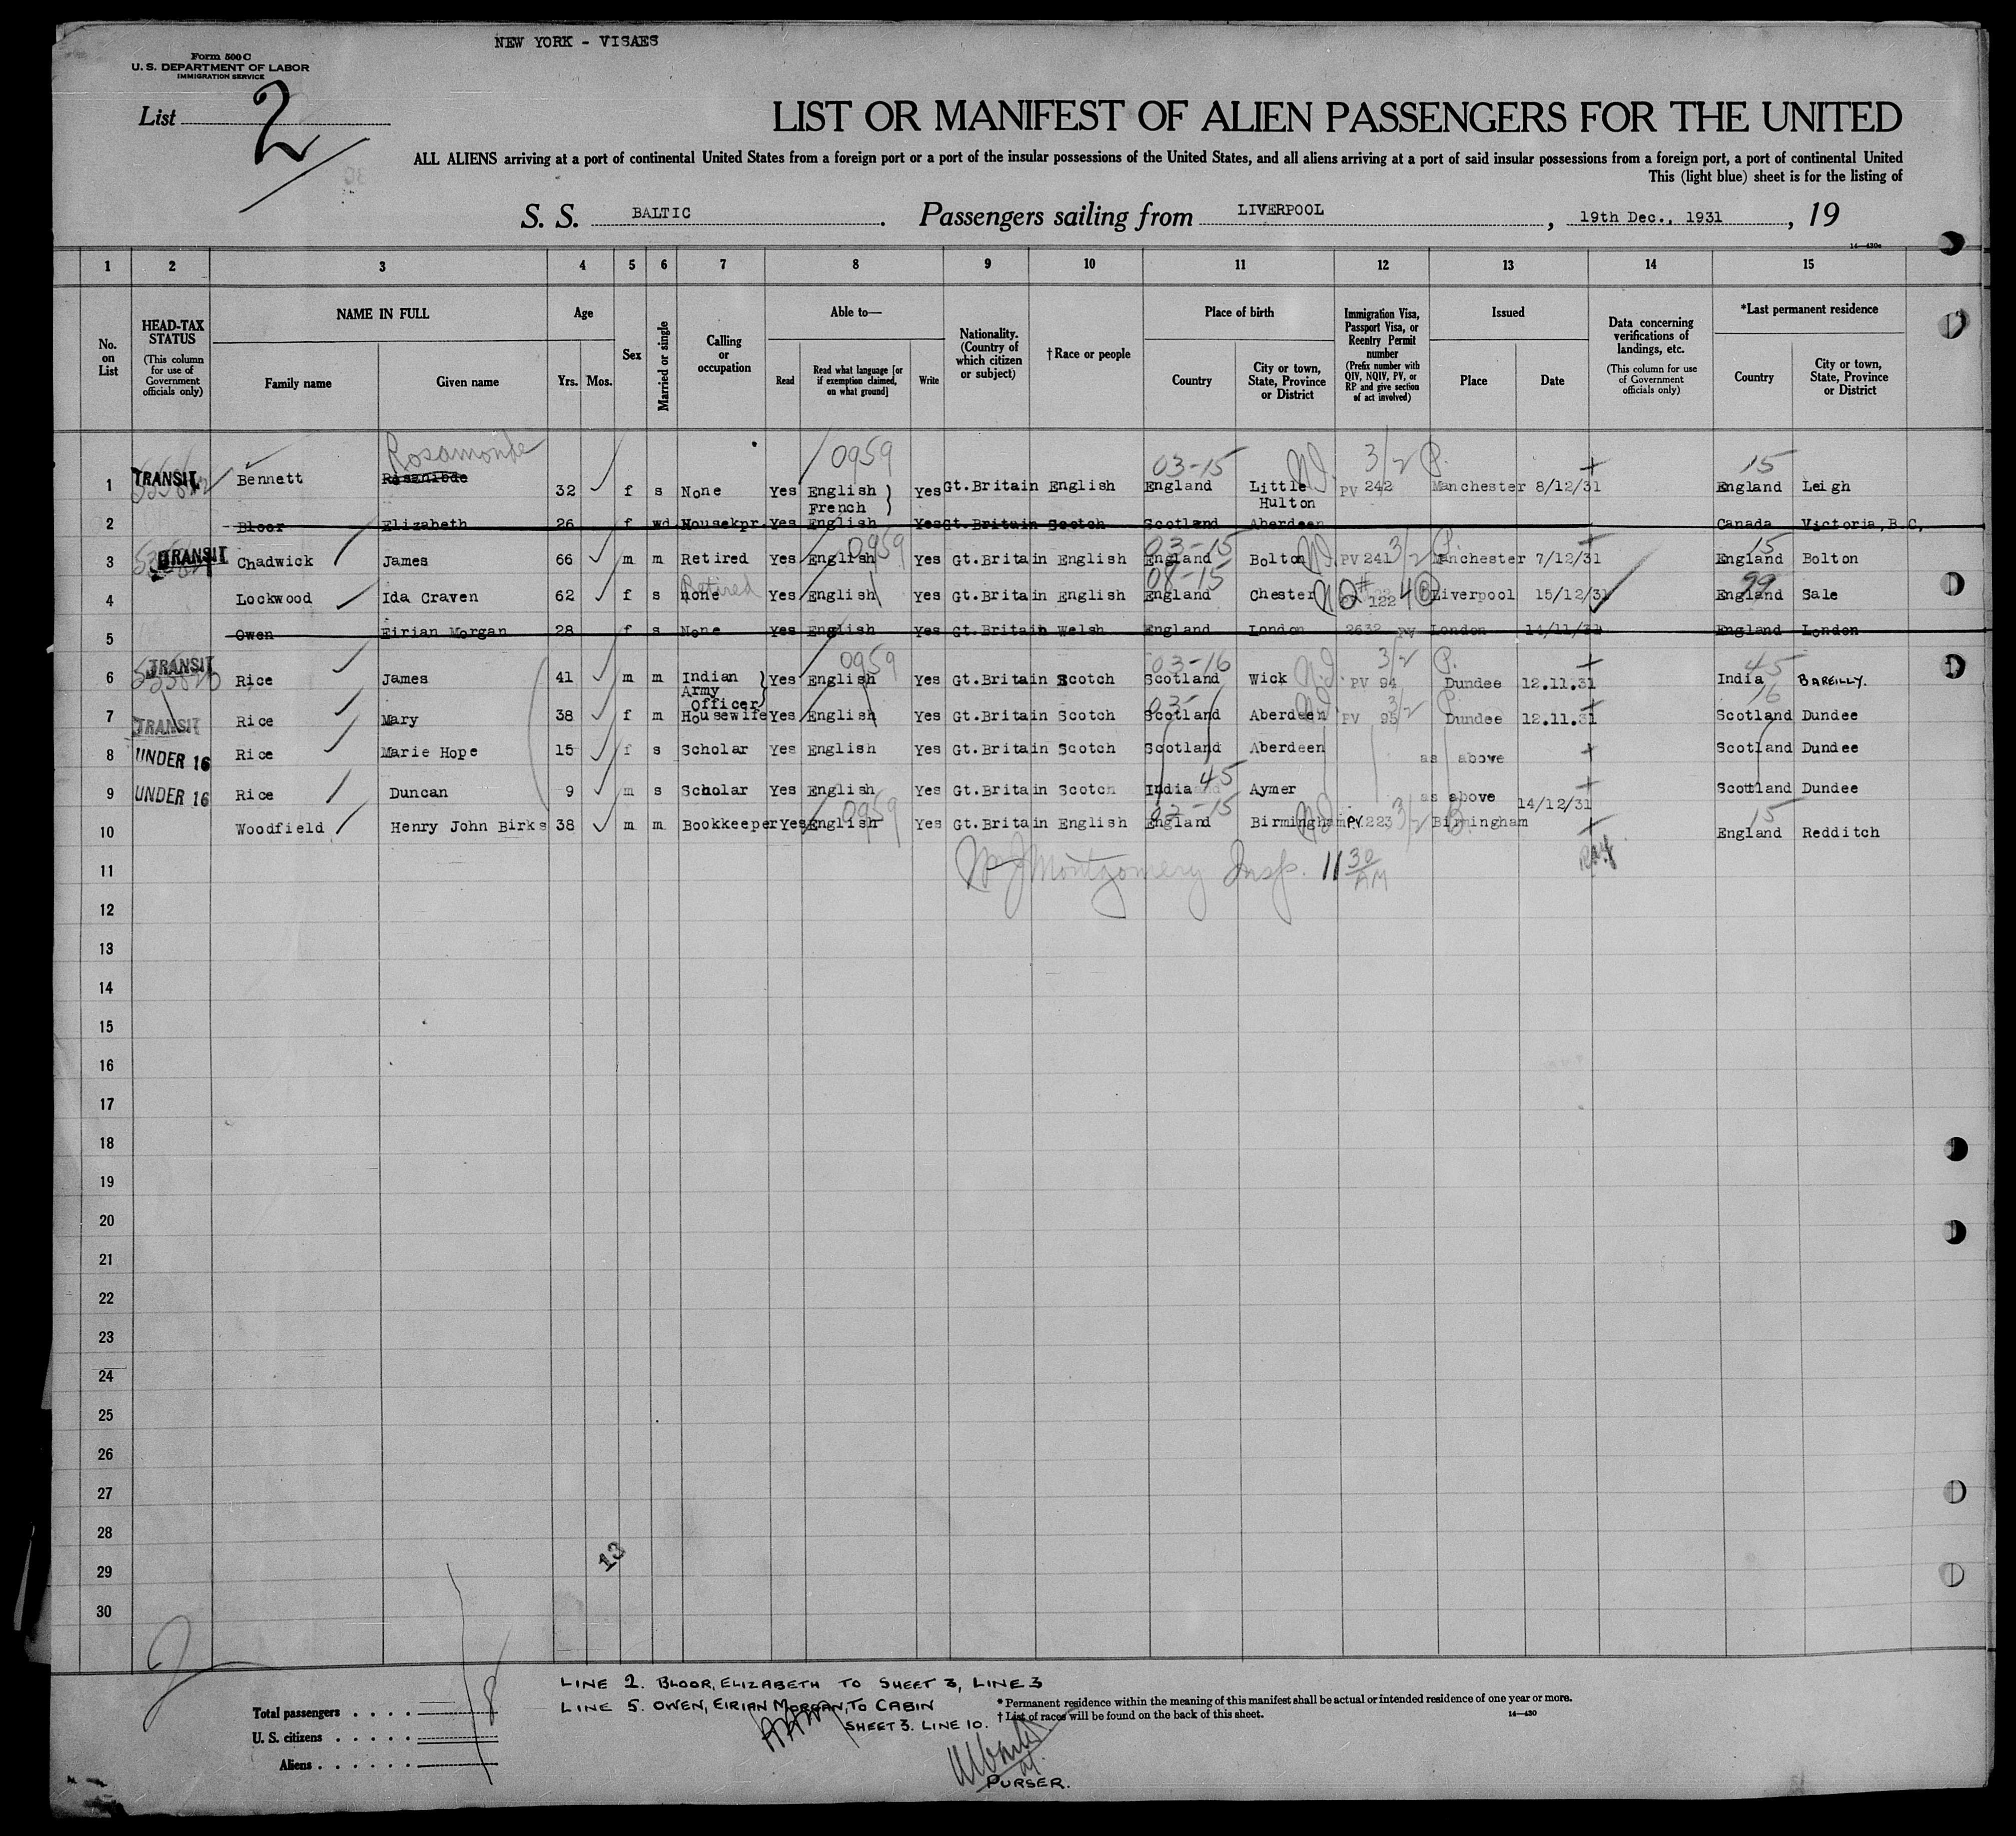 NEW YORK - VISAES
Form 500 C
U. S. DEPARTMENT OF LABOR
IMMIGRATION SERVICE
List 2
LIST OR MANIFEST OF ALIEN PASSENGERS FOR THE UNITED
ALL ALIENS arriving at a port of continental United States from a foreign port or a port of the insular possessions of the United States, and all aliens arriving at a port of said insular possessions from a foreign port, a port of continental United
This (light blue) sheet is for the listing of
S. S. BALTIC. Passengers sailing from LIVERPOOL, 19th Dec., 1931, 19
14—430c
1 2 3 4 5 6 7 8 9 10 11 12 13 14 15
No. on List
HEAD-TAX STATUS (This column for use of Government officials only)
NAME IN FULL
Family name Given name
Age
Yrs. Mos.
Sex
Married or single
Calling or occupation
Able to—
Read Read what language [or if exemption claimed, on what ground] Write
Nationality. (Country of which citizen or subject)
†Race or people
Place of birth
Country City or town, State, Province or District
Immigration Visa, Passport Visa, or Reentry Permit number (Prefix number with QIV, NQIV, PV, or RP and give section of act involved)
Issued
Place Date
Data concerning verifications of landings, etc. (This column for use of Government officials only)
*Last permanent residence
Country City or town, State, Province or District
Rosamonde 0959 03-15 3/2 P. 15
1 TRANSIT Bennett 32 f s None Yes English French } Yes Gt.Britain English England Little Hulton PV 242 Manchester 8/12/31 England Leigh
2 Bloor Elizabeth 26 f wd Housekpr. Yes English Yes Gt.Britain Scotch Scotland Aberdeen Canada Victoria,B.C,
0959 03-15 3/2 P. 15
3 TRANSIT Chadwick James 66 m m Retired Yes English Yes Gt.Britain English England Bolton PV 241 Manchester 7/12/31 England Bolton
Retired 08-15 99
4 Lockwood Ida Craven 62 f s none Yes English Yes Gt.Britain English England Chester 122 4 Liverpool 15/12/31 England Sale
5 Owen Eirian Morgan 28 f s None Yes English Yes Gt.Britain Welsh England London 2632 PV London 14/11/31 England London
0959 03-16 3/2 P. 45
6 TRANSIT Rice James 41 m m Indian Army Officer } Yes English Yes Gt.Britain Scotch Scotland Wick PV 94 Dundee 12.11.31 India BAREILLY.
03- 3/2 P. 16
7 TRANSIT Rice Mary 38 f m Housewife Yes English Yes Gt.Britain Scotch Scotland Aberdeen PV 95 Dundee 12.11.31 Scotland Dundee
8 UNDER 16 Rice Marie Hope 15 f s Scholar Yes English Yes Gt.Britain Scotch Scotland Aberdeen as above Scotland Dundee
45
9 UNDER 16 Rice Duncan 9 m s Scholar Yes English Yes Gt.Britain Scotch India Aymer as above Scotland Dundee
0959 15
10 Woodfield Henry John Birks 38 m m Bookkeeper Yes English Yes Gt.Britain English England Birmingham PV.223 3/2 Birmingham 14/12/31 England Redditch
11 Montgomery Insp. 11 30 AM
12
13
14
15
16
17
18
19
20
21
22
23
24
25
26
27
28
29
30
13
LINE 2. BLOOR, ELIZABETH TO SHEET 3, LINE 3
LINE 5. OWEN, EIRIAN MORGAN, TO CABIN
SHEET 3. LINE 10.
Total passengers . . . . 8
U. S. citizens . . . . .
Aliens . . . . . .
* Permanent residence within the meaning of this manifest shall be actual or intended residence of one year or more.
† List of races will be found on the back of this sheet.
14—430
PURSER.